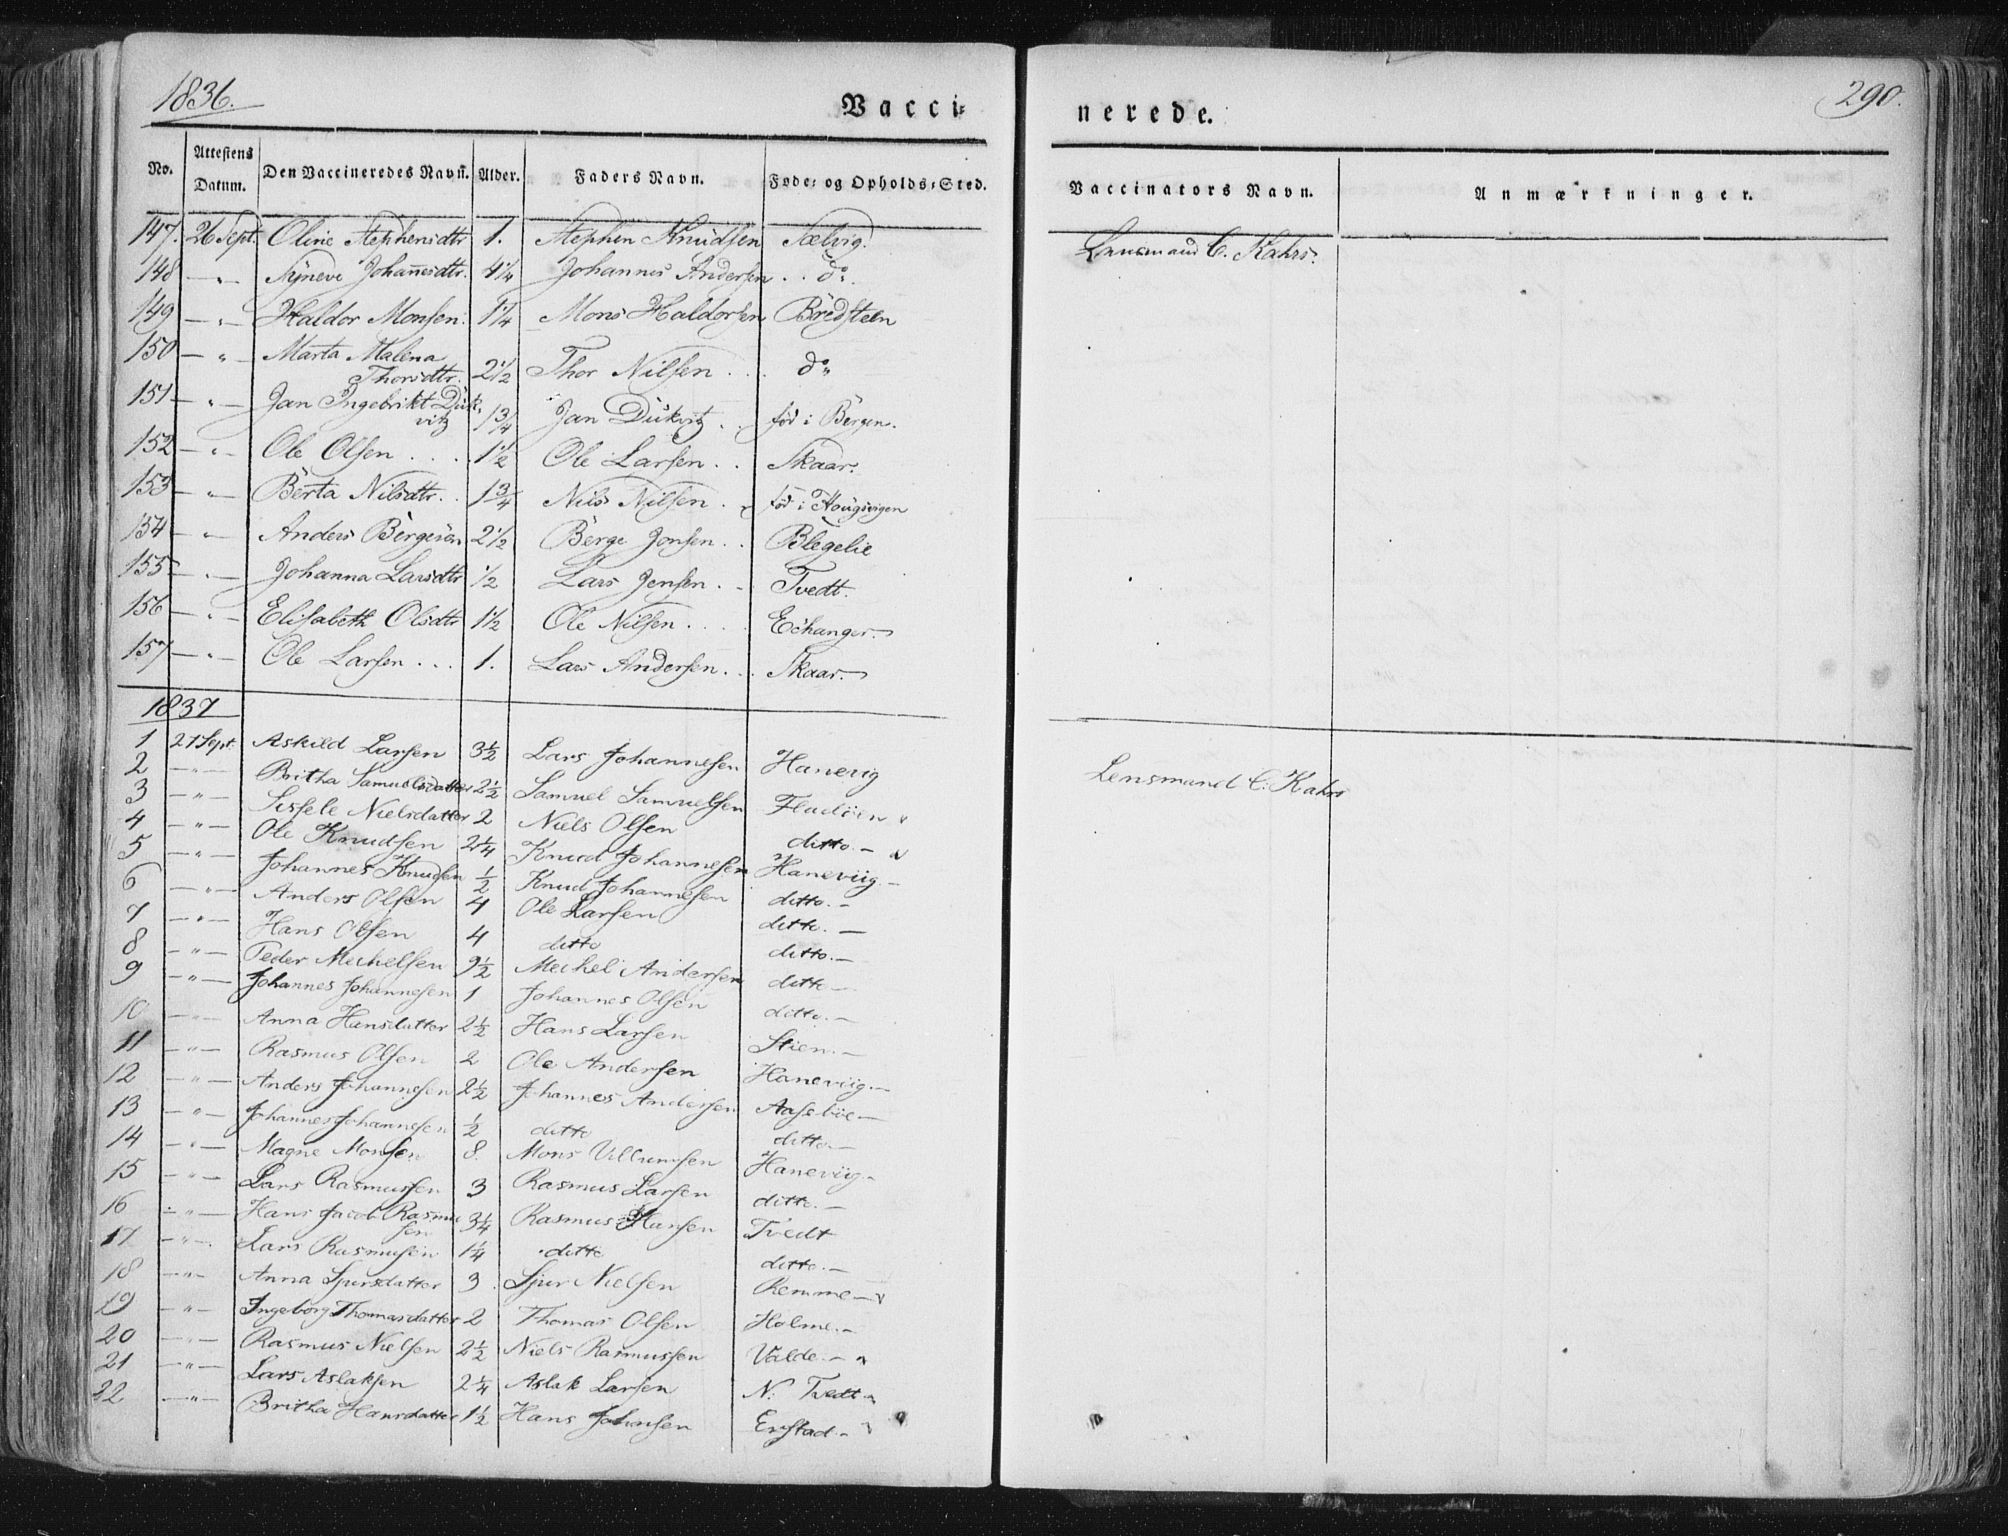 1836.
Vacci=
nerede.
290.
No. Attestens Datum. Den Vaccineredes Navn. Alder. Faders Navn. Føde= og Opholds=Sted. Vaccinators Navn. Anmærkninger.
147. 26 Sept. Oline Stephensdtr 1. Stephen Knudsen Sælvig. Lensmand C. Kahrs.
148 — " — Synevè Johannesdtr. 4 1/4 Johannes Andersen . . do.
149 — " — Haldor Monsen. 1 1/4 Mons Haldorsen Bredsteen
150 — " — Marta Malena
Thorsdtr. 2 1/2 Thor Nilsen . . . do
151 — " — Jan Ingebrikt Dük=
vitz 1 3/4 Jan Dükvitz . . fød i Bergen.
152 — " — Ole Olsen . . . . 1 1/2 Ole Larsen . . Skaar.
153 — " — Berta Nilsdtr. . 1 3/4 Nils Nilsen . . fød i Hougsvigen
154 — " — Anders Börgesön 2 1/2 Börge Jonsen . . Blegelie
155 — " — Johanna Larsdtr 1/2 Lars Jensen . . Tvedt.
156 — " — Elisabeth Olsdtr 1 1/2 Ole Nilsen . . . . Echanger.
157 — " — Ole Larsen . . . 1. Lars Andersen . . . Skaar.
1837
1 21 Sept. Askild Larsen 3 1/2 Lars Johannesen Hanevig Lensmand C: Kahrs
2 — " — Britha Samuelsdatter 2 1/2 Samuel Samuelsen Fladöen "
3 — " — Sissele Nielsdatter 2 Niels Olsen ditto. — "
4 — " — Ole Knudsen 2 1/4 Knud Johannesen Haneviig. —
5 — " — Johannes Knudsen 1/2 Knud Johannesen ditto. —
6 — " — Anders Olsen 4 Ole Larsen ditto. —
7 — " — Hans Olsen 4 ditto ditto. —
8 — " — Peder Michelsen 9 1/2 Michel Andersen ditto —
9 — " — Johannes Johannesen 1 Johannes Olsen ditto. —
10 — " — Anna Hansdatter 2 1/2 Hans Larsen Stien. —
11 — " — Rasmus Olsen 2 Ole Andersen Haneviig. —
12 — " — Anders Johannesen 2 1/2 Johannes Andersen Aaseböe —
13 — " — Johannes Johannesen 1/2 ditto ditto. —
14 — " — Magne Monsen 8. Mons Villumsen Haneviig. —
15 — " — Lars Rasmussen 3 Rasmus Larsen ditto. —
16 — " — Hans Jacob Rasmu
sen 3 1/4 Rasmus Hansen Tvedt
17 — " — Lars Rasmusen 1 1/4 ditto ditto. —
18 — " — Anna Sjursdatter 3. Sjur Nielsen Remme —
19 — " — Ingeborg Thomasdatter 2 Thomas Olsen Holme. —
20 — " — Rasmus Nielsen 2 1/2 Niels Rasmussen Valde. — "
21 — " — Lars Aslaksen 2 1/4 Aslak Larsen N: Tvedt —
22 — " — Britha Hansdatter 1 1/2 Hans Johnsen Erstad. —